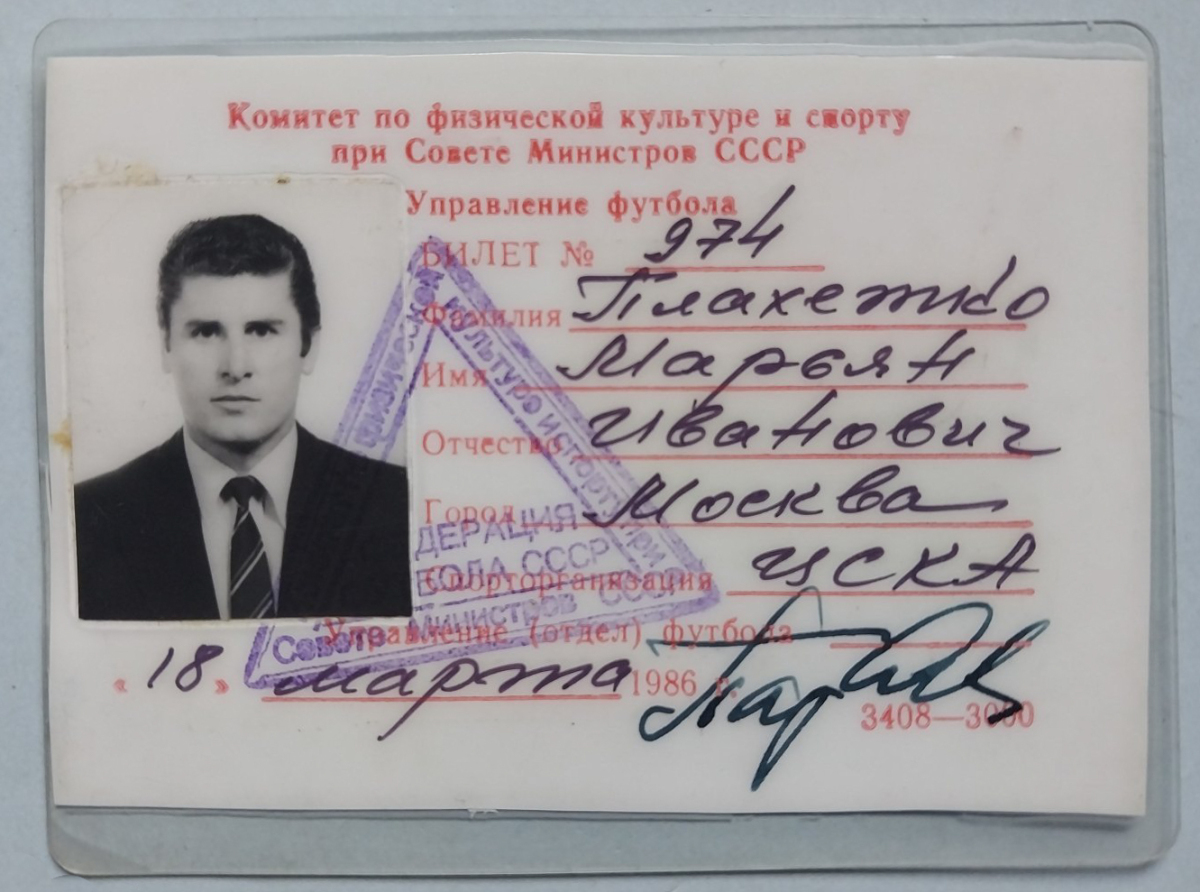 Комитет по физической культуре и спорту
при Совете Министров СССР
Управление футбола
БИЛЕТ № 974
Фамилия Плахетко
Имя Марьян
Отчество Иванович
Город Москва
Спорторганизация ЦСКА
Управление (отдел) футбола
« 18 » марта 1986 г.
3408—3000
культуре и спорту при
ДЕРАЦИЯ
БОЛА СССР
Совете Министров СССР